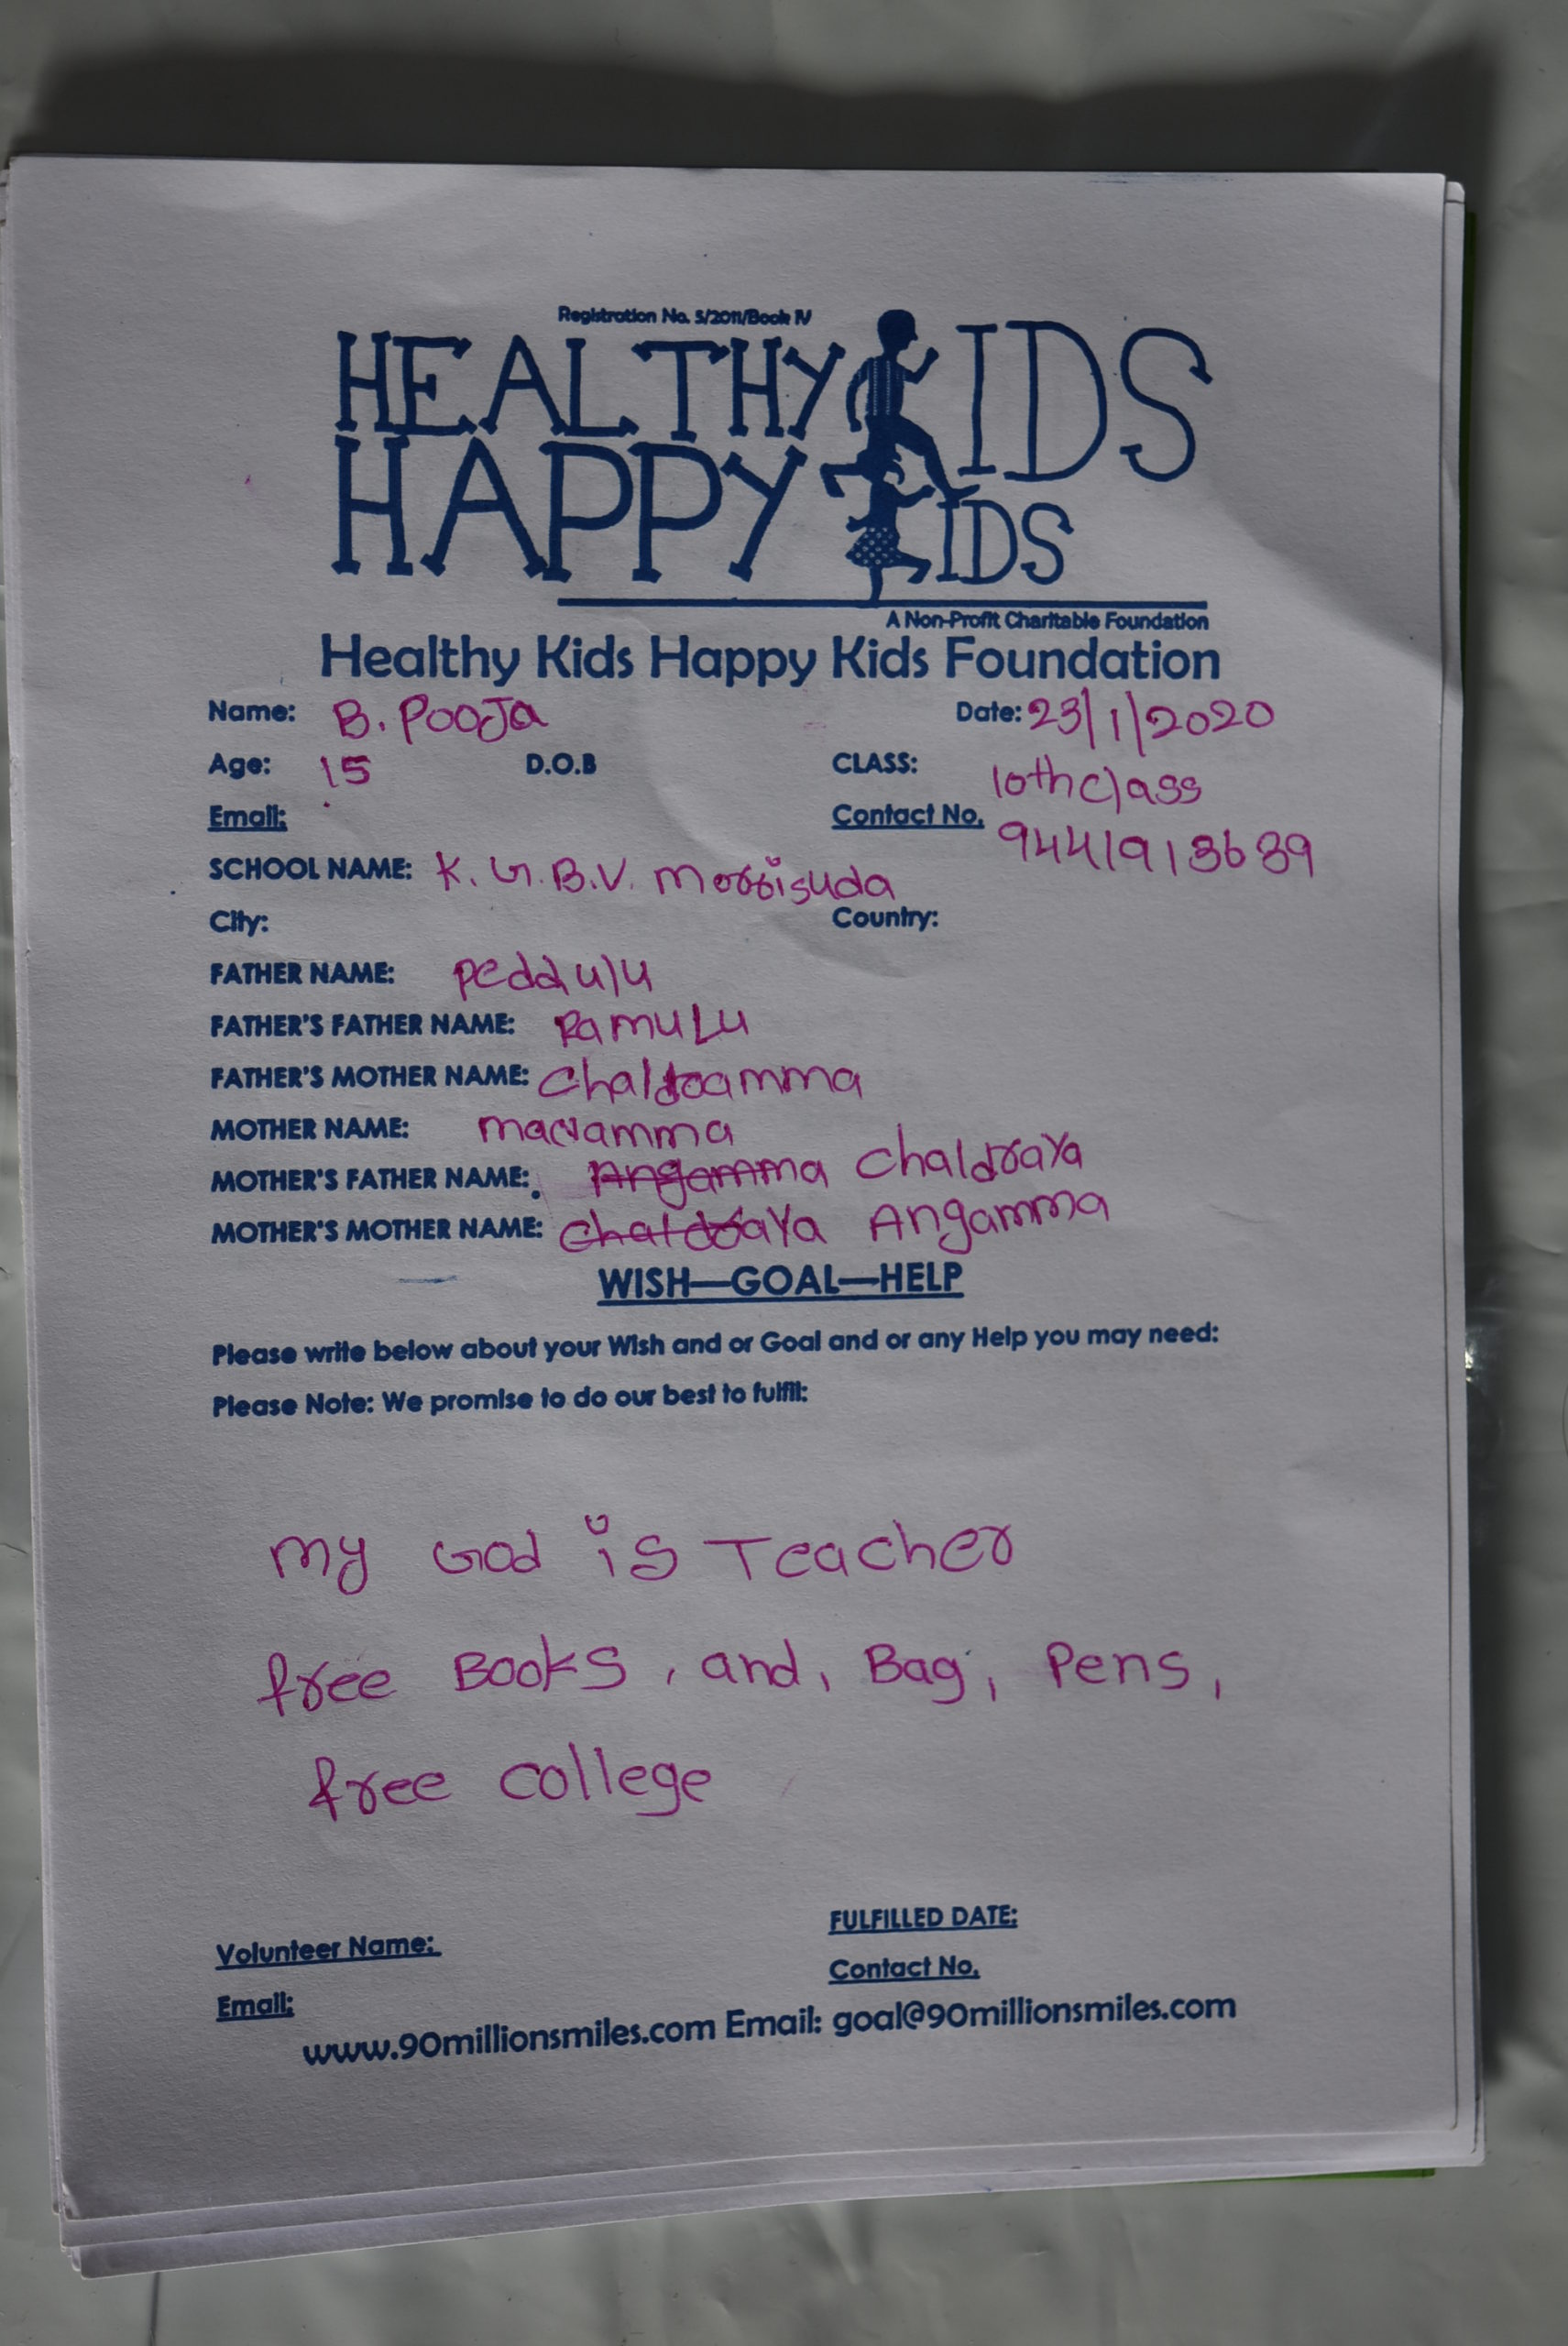 Registration No. 5/2011/Book IV
HEALTHY KIDS
HAPPY KIDS
A Non-Profit Charitable Foundation
Healthy Kids Happy Kids Foundation
Name: B. POOJa Date: 23/1/2020
Age: 15 D.O.B CLASS: 10th class
Email: Contact No. 9441913639
SCHOOL NAME: K. G.B.V. Morrisuda
City: Country:
FATHER NAME: Peddulu
FATHER'S FATHER NAME: RamuLu
FATHER'S MOTHER NAME:
MOTHER NAME:
MOTHER'S FATHER NAME: Angamma Chaldraya
MOTHER'S MOTHER NAME: Chaldraya Angamma
WISH—GOAL—HELP
Please write below about your Wish and or Goal and or any Help you may need:
Please Note: We promise to do our best to fulfil:
my God is Teacher
free Books, and, Bag, Pens,
free college
FULFILLED DATE:
Volunteer Name:
Contact No.
Email:
www.90millionsmiles.com Email: goal@90millionsmiles.com